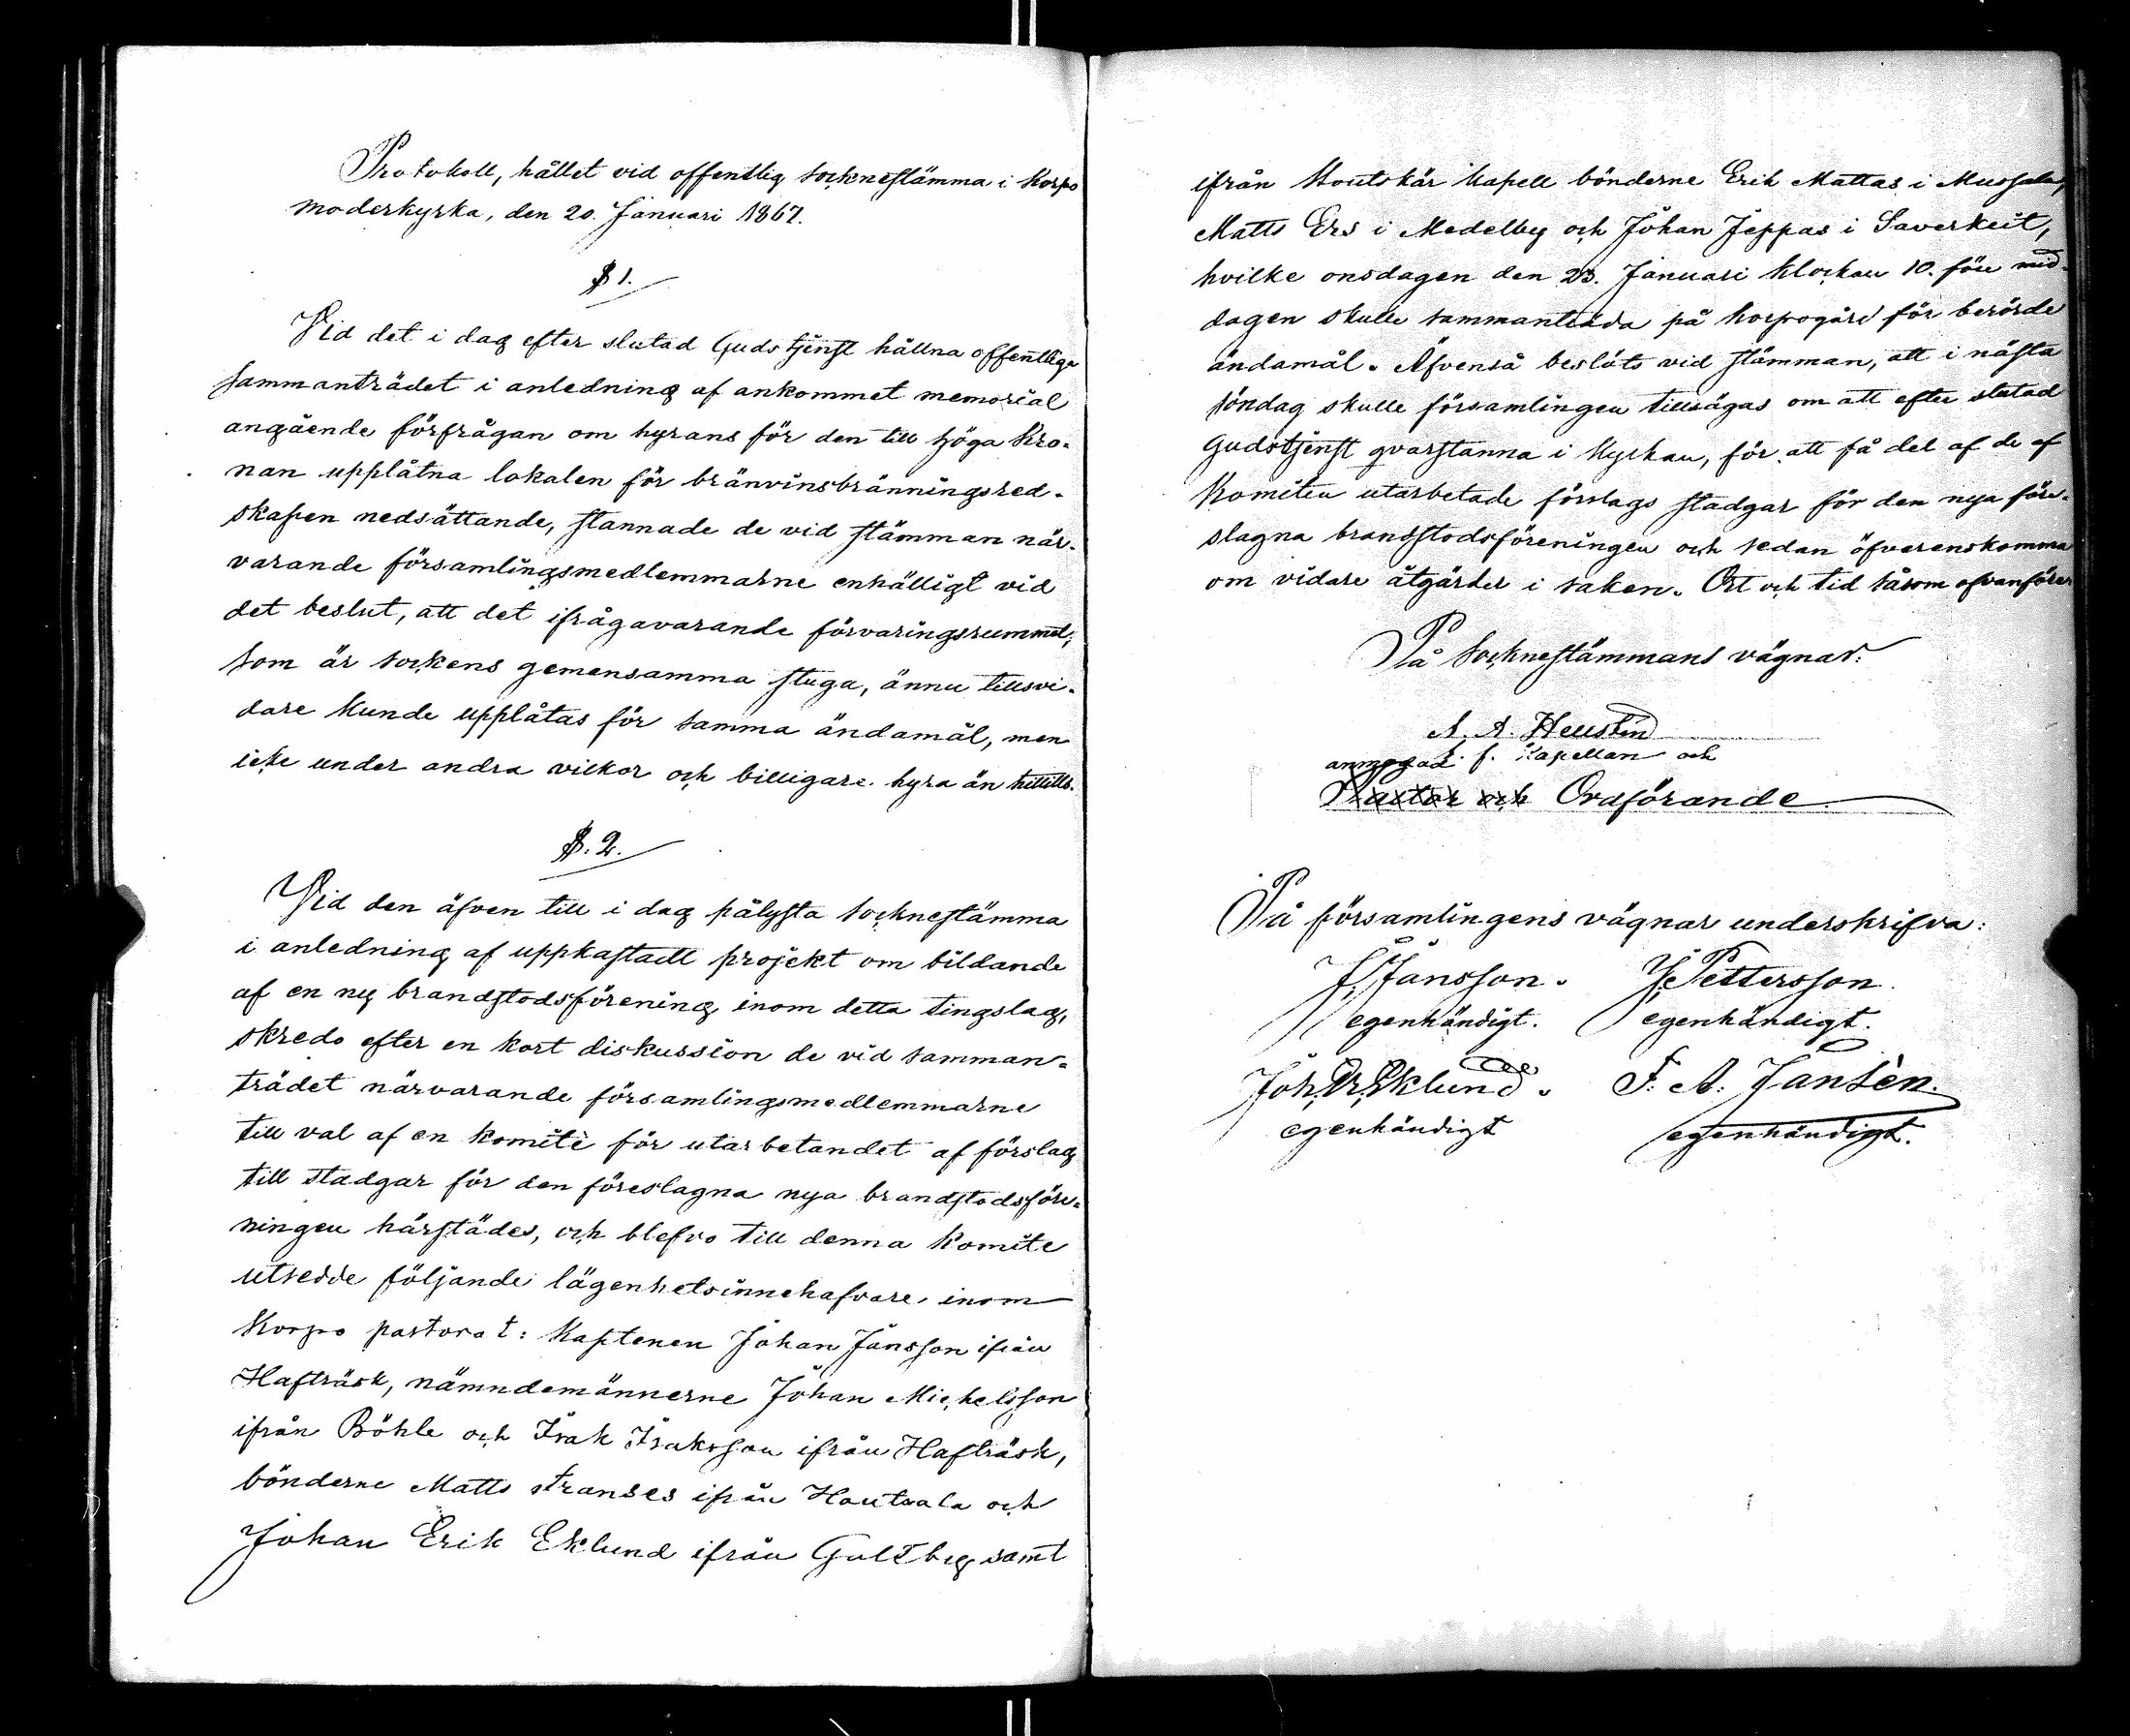 Protokoll, hållet vid offentlig socknestämma i Korpo
moderkyrka, den 20. Januari 1867.
§ 1.
Vid det i dag efter slutad Gudstjenst hållna offentliga
sammanträdet i anledning af ankommet memorial
angående förfrågan om hyrans för den till höga Kro-
nan upplåtna lokalen för bränvinsbränningsred-
skapen nedsättande, stannade de vid stämman när-
varande församlingsmedlemmarne enhälligt vid
det beslut, att det ifrågavarande förvaringsrummet,
som är sockens gemensamma stuga, ännu tillsvi-
dare kunde upplåtas för samma ändamål, men
icke under andra vilkor och billigare hyra än hittills.
§. 2.
Vid den äfven till i dag pålysta socknestämma
i anledning af uppkastadt projekt om bildande
af en ny brandstodsförening inom detta tingslag,
skredo efter en kort diskussion de vid samman-
trädet närvarande församlingsmedlemmarne
till val af en komitè för utarbetandet af förslag
till stadgar för den föreslagna nya brandstodsföre-
ningen härstädes, och blefvo till denna komite
utsedde följande lägenhetsinnehafvare inom
Korpo pastorat: Kaptenen Johan Jansson ifrån
Hafträsk, nämndemännerne Johan Michelsson
ifrån Böhle och Isak Isaksson ifrån Hafträsk,
bönderne Matts Franses ifrån Houtsala och
Johan Erik Eklund ifrån Galtby samt
ifrån Houtskär kapell bönderne Erik Mattas i Mussala,
Matts Ers i Medelby och Johan Jeppas i Saverkeit,
hvilke onsdagen den 23. Januari klockan 10. före mid-
dagen skulle sammanträda på Korpogård för berörde
ändamål. Äfvenså beslöts vid stämman, att i nästa
söndag skulle församlingen tillsägas om att efter slutad
Gudstjenst qvarstanna i kyrkan, för att få del af de af
Komiten utarbetade förslags stadgar för den nya före-
slagna brandstodsföreningen och sedan öfverenskomma
om vidare åtgärder i saken. Ort och tid såsom ofvanföre
På Socknestämmans vägnar:
A. A. Hellstén
anmodad t. f. Kapellan och
Pastor och Ordförande.
På församlingens vägnar underskrifva:
J. Jansson. J. Pettersson.
egenhändigt. egenhändigt.
Joh. Er. Eklund. F. A. Jansèn.
egenhändigt egenhändigt.